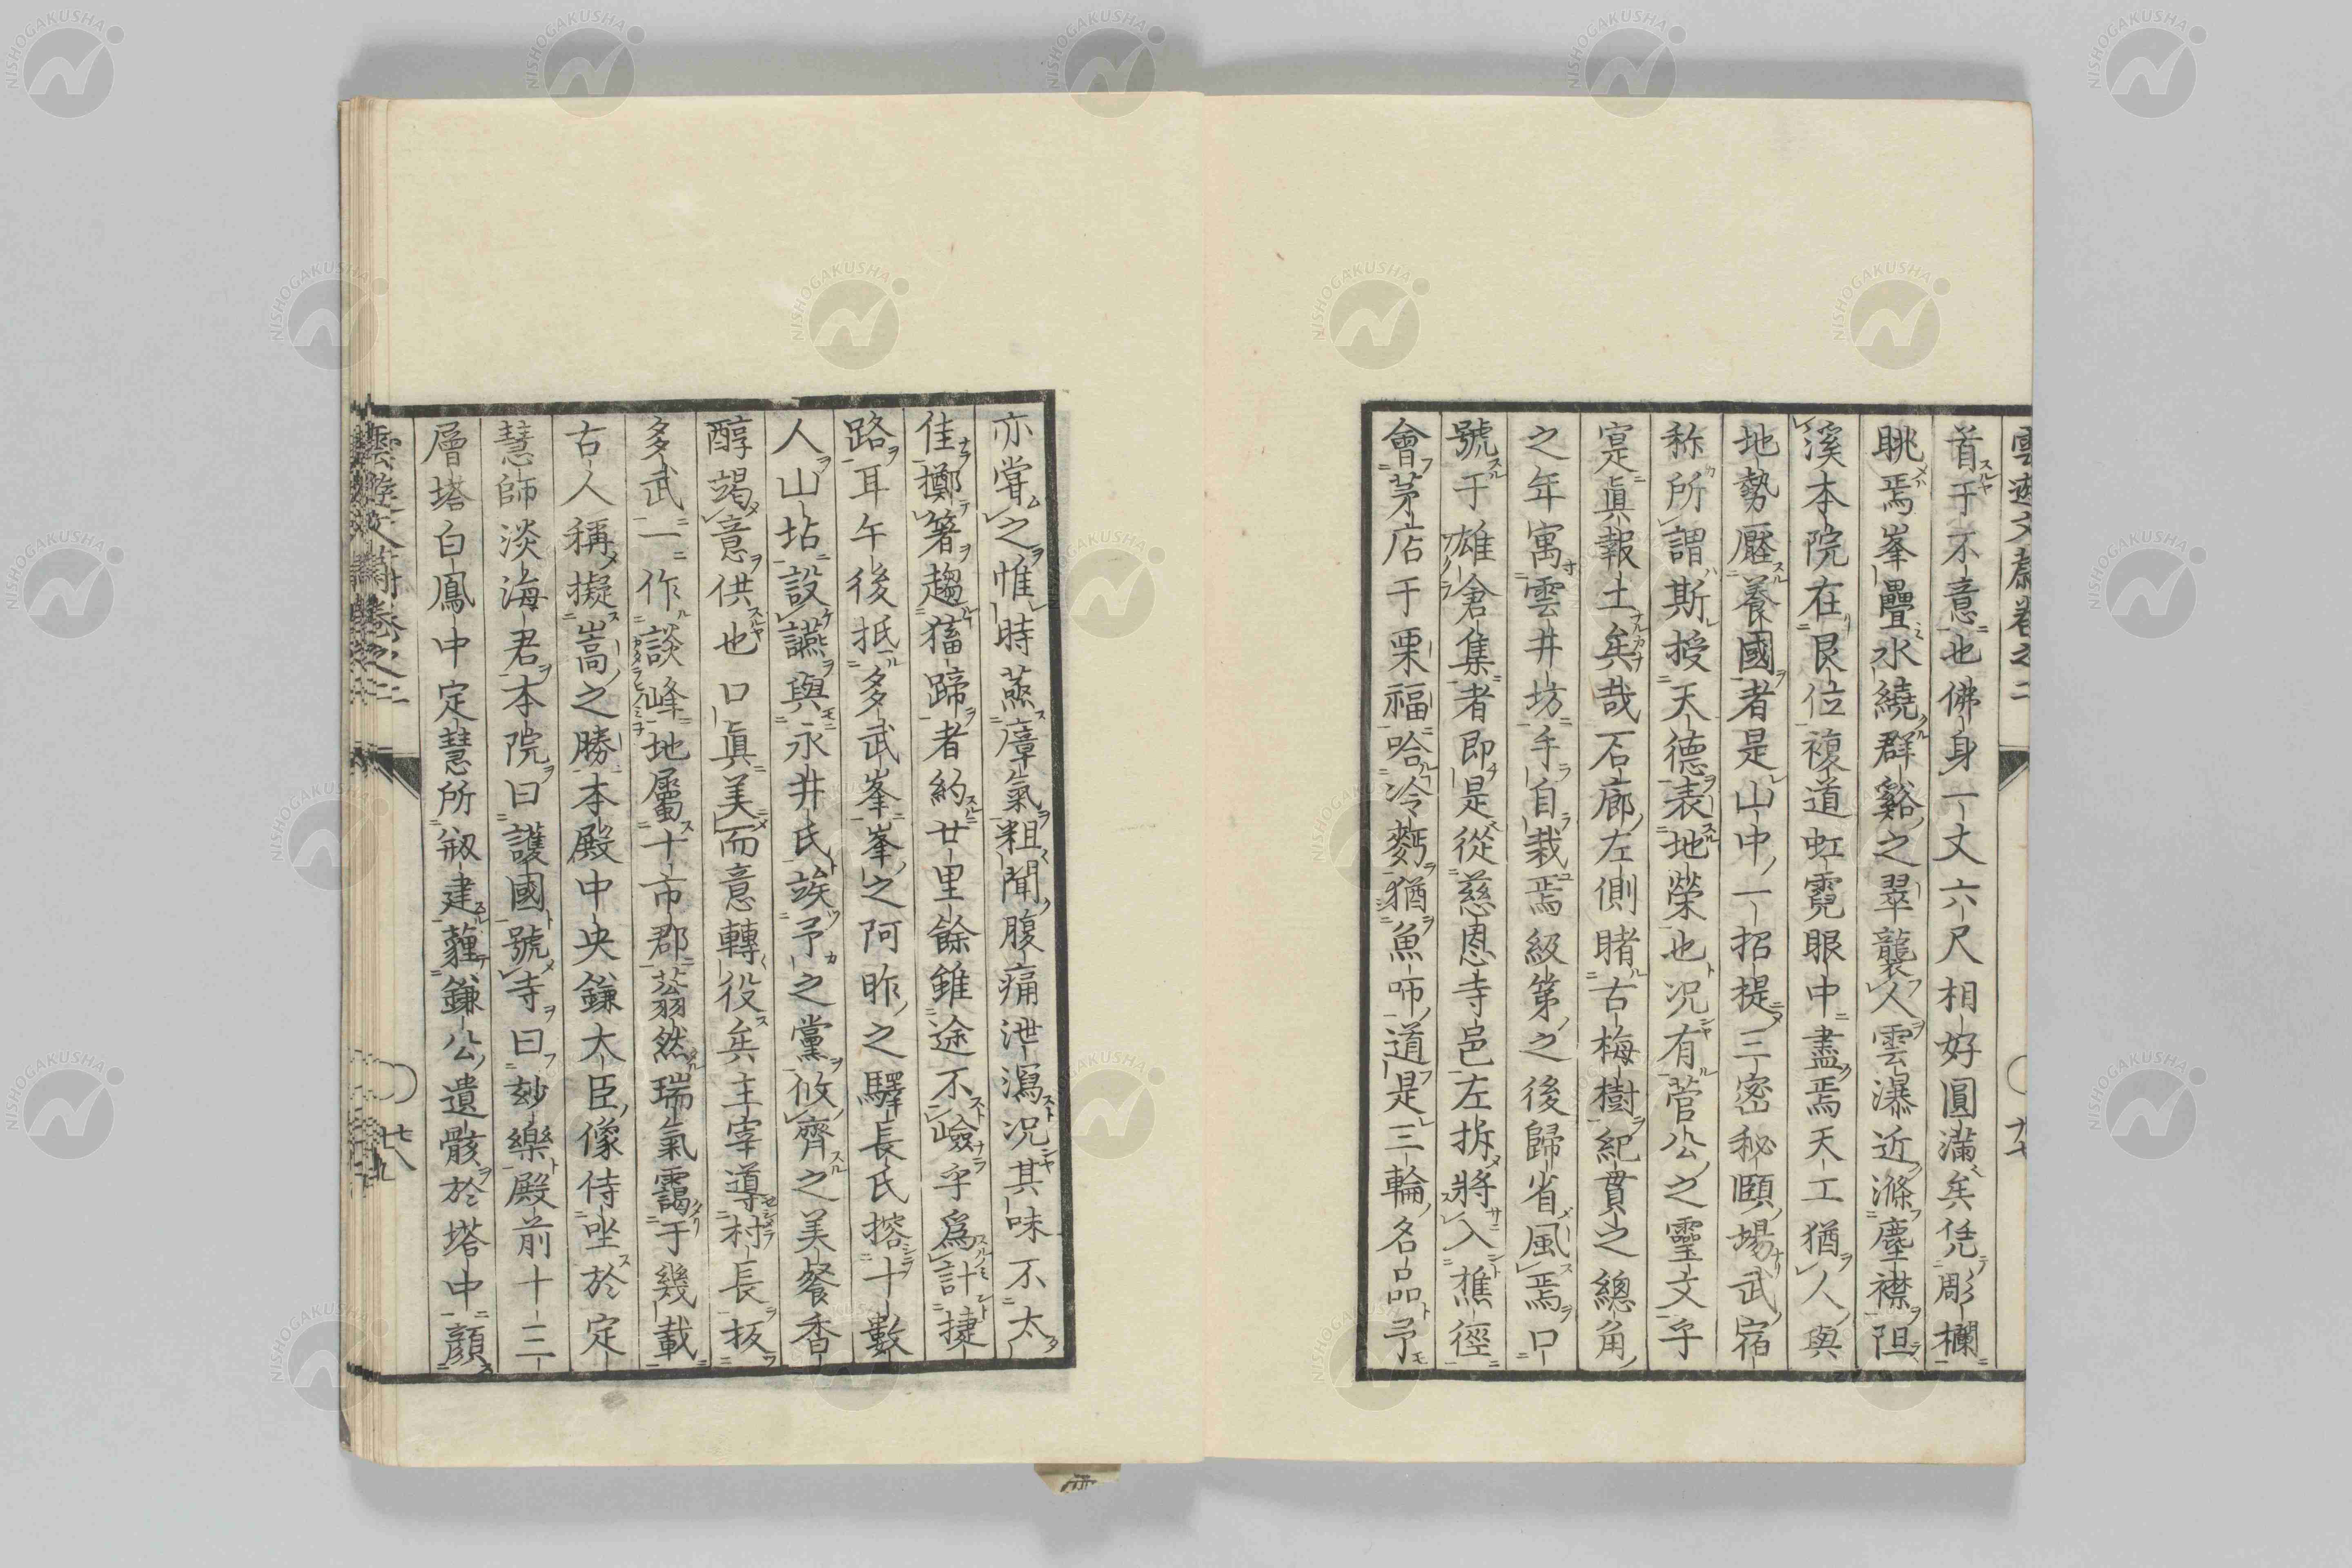 首于不意也佛身一丈六尺相好圓滿矣凭彫欄
眺焉峯疊水繞群谿之翠襲人雲瀑近滌塵襟阻
溪本院在艮位複道虹霓眼中盡焉天工猶人與
地勢壓養國者是山中一招提三密秘賾場武宿
称所謂斯授天德表地榮也况有菅公之靈文乎
寔眞報土矣哉石廊左側睹古梅樹紀貫之總角
之年寓雲井坊手自栽焉級第之後歸省風焉口
號于雄倉集者即是從慈恩寺邑左拆將入樵徑
會茅店于栗福哈冷麪猶魚呞道是三輪名品予
亦甞之惟時蒸瘴氣粗聞腹痛泄瀉况其味不太
佳擲箸趨豨蹄者約廿里餘雖途不嶮乎爲計捷
路耳午後抵多武峯峯之阿昨之驛長氏搈十數
人山坫設讌與永井氏竢予之黨攸齊之美餐香
醇竭意供也口眞美而意轉役矣主宰導村長扳
多武一作談峰地屬十市郡蓊然瑞氣靄于幾載
古人稱擬嵩之勝本殿中央鎌大臣像侍坐於定
慧師淡海君本院曰護國號寺曰玅樂殿前十三
層塔白鳳中定慧所剏建薶鎌公遺骸於塔中顔
NISHOGAKUSHA